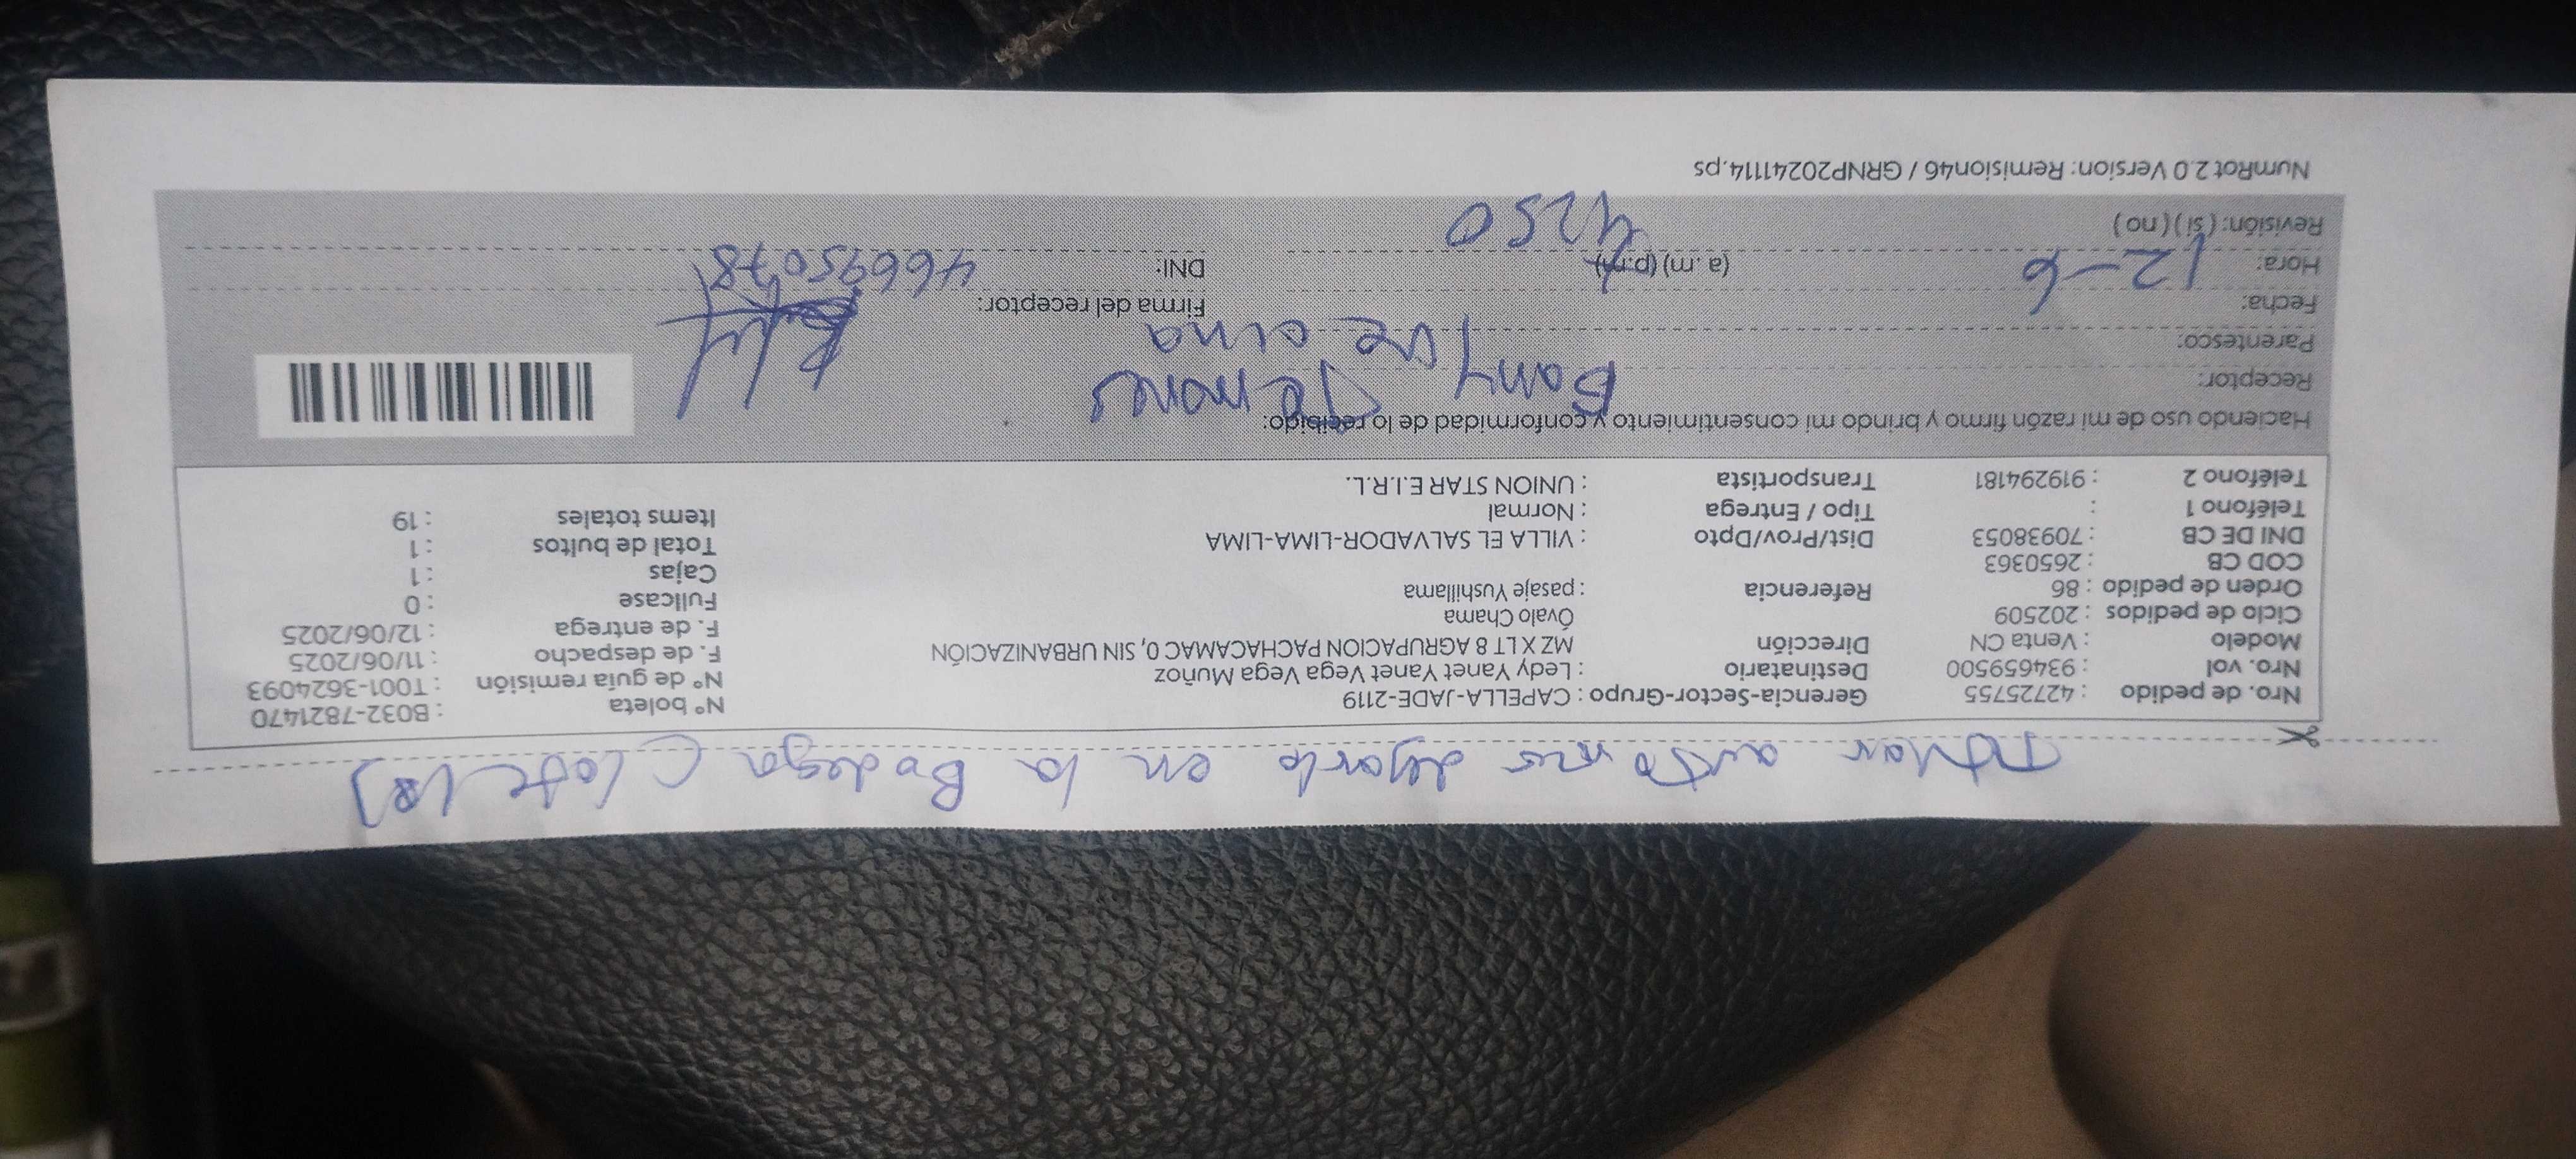 Titular autorizo dejarlo en la Bodega (lote 18)
Nro. de pedido : 42725755 Gerencia-Sector-Grupo : CAPELLA-JADE-2119 N° boleta : B032-7821470
Nro. vol : 934659500 Destinatario : Ledy Yanet Yanet Vega Vega Muñoz N° de guía remisión : T001-3624093
Modelo : Venta CN Dirección MZ X LT 8 AGRUPACION PACHACAMAC 0, SIN URBANIZACIÓN F. de despacho : 11/06/2025
Ciclo de pedidos : 202509 Óvalo Chama F. de entrega : 12/06/2025
Orden de pedido : 86 Referencia : pasaje Yushillama Fullcase : 0
COD CB : 2650363 Cajas : 1
DNI DE CB : 70938053 Dist/Prov/Dpto : VILLA EL SALVADOR-LIMA-LIMA Total de bultos : 1
Teléfono 1 : Tipo / Entrega : Normal Items totales : 19
Teléfono 2 : 919294181 Transportista : UNION STAR E.I.R.L.
Haciendo uso de mi razón firmo y brindo mi consentimiento y conformidad de lo recibido:
Receptor:
Parentesco: Vecina
Fecha: 12-6 Firma del receptor:
Hora: (a.m) (p.m) DNI: 46695078
Revisión: (si) (no) 4250
NumRot 2.0 Version: Remision46 / GRNP20241114.ps